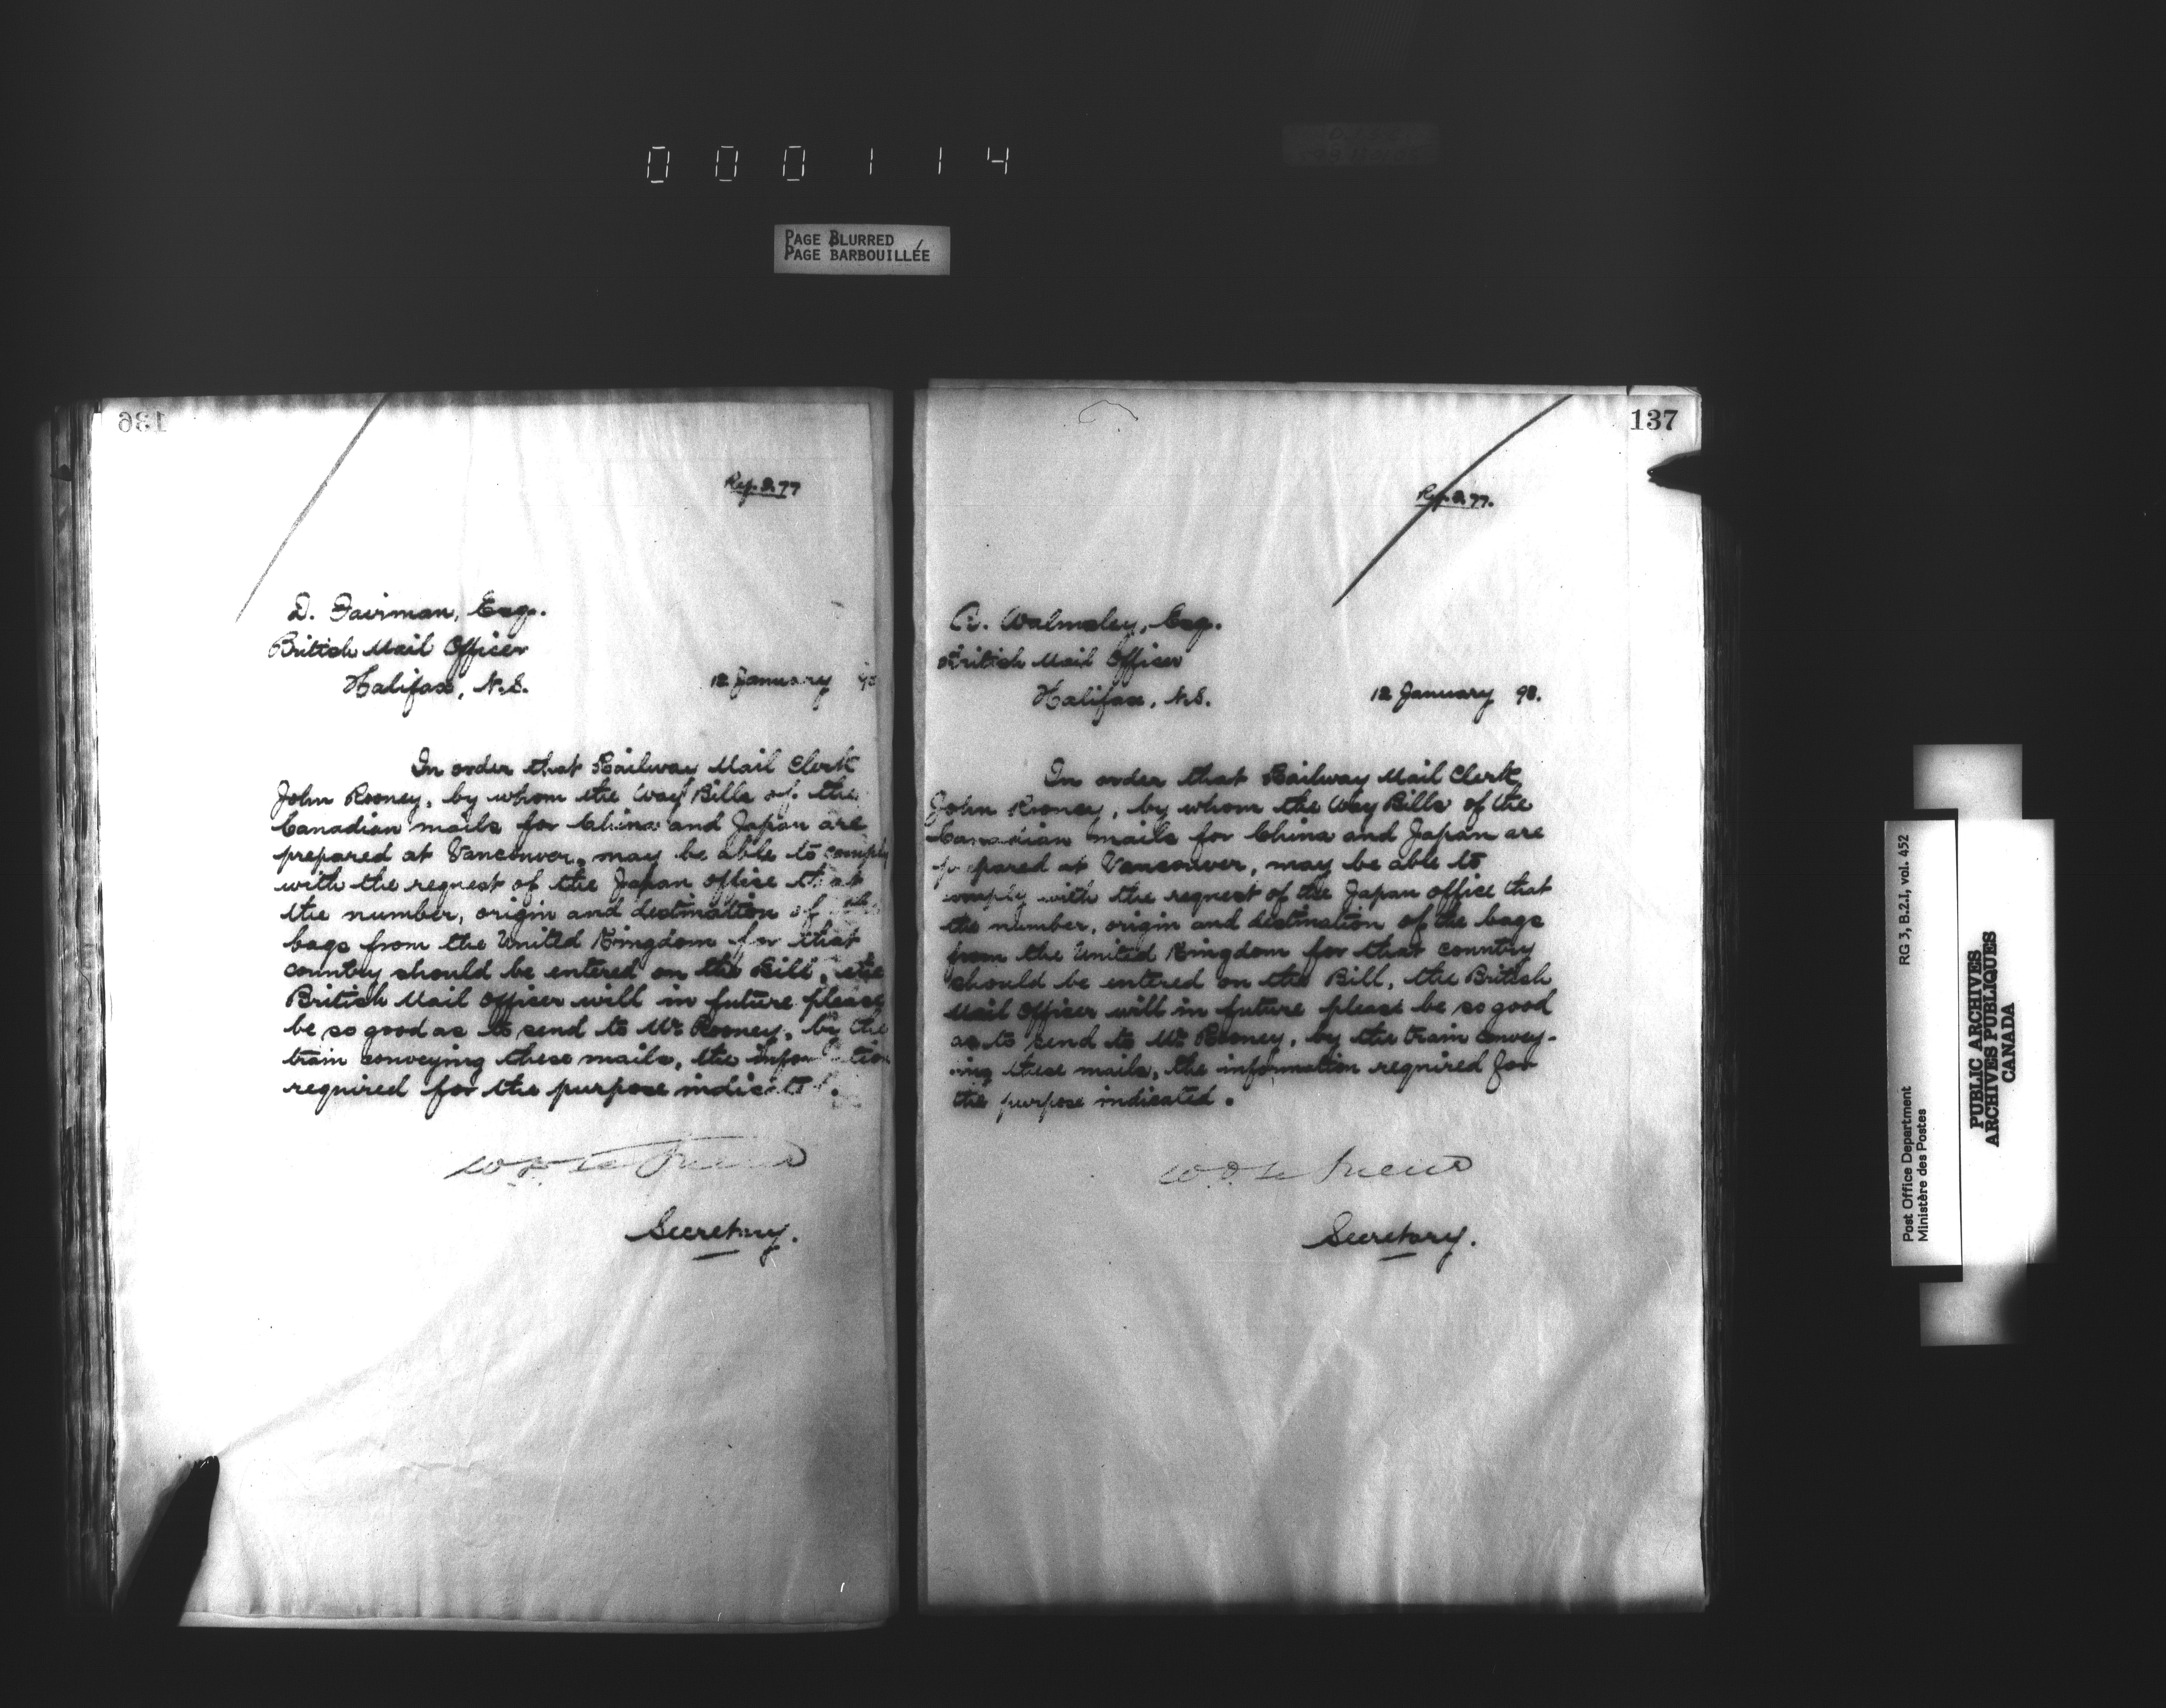 000114
PAGE BLURRED
PAGE BARBOUILLÉE
136
Rep. 2.77
D. Fairman, Esq.
British Mail Officer
Halifax, N.S.
12 January
In order that Railway Mail Clerk
John Rooney, by whom the Way Bills of the
Canadian mails for China and Japan are
prepared at Vancouver, may be able to comply
with the request of the Japan office that
the number, origin and destination of the
bags from the United Kingdom for that
country should be entered on the Bill, the
British Mail Officer will in future please
be so good as to send to Mr. Rooney, by the
train conveying these mails, the information
required for the purpose indicated.
Secretary.
137
Rep. 2.77.
A. Walmsley, Esq.
British Mail Officer
Halifax, N.S.
12 January 98.
In order that Railway Mail Clerk
John Rooney, by whom the Way Bills of the
Canadian mails for China and Japan are
prepared at Vancouver, may be able to
comply with the request of the Japan office that
the number, origin and destination of the bags
from the United Kingdom for that country
should be entered on the Bill, the British
Mail Officer will in future please be so good
as to send to Mr. Rooney, by the train convey-
ing these mails, the information required for
the purpose indicated.
Secretary.
Post Office Department
Ministère des Postes
RG 3, B.2.I, vol. 452
PUBLIC ARCHIVES
ARCHIVES PUBLIQUES
CANADA